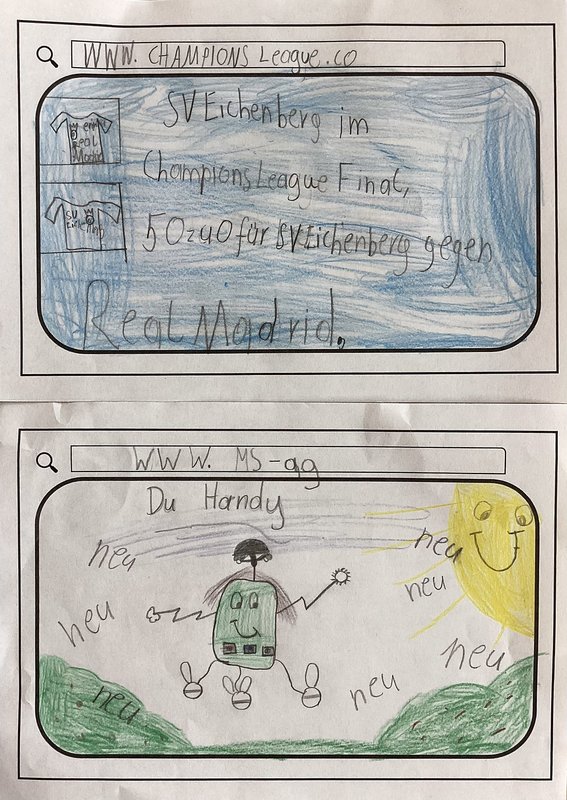 WWW. CHAMPIONS League.co
SV Eichenberg im
Champions League Final,
50 zu 0 für SV Eichenberg gegen
Real Madrid.
Real
Madrid
SV
WWW. MS-ag
Du Handy
neu
neu
neu
neu
neu
neu
neu